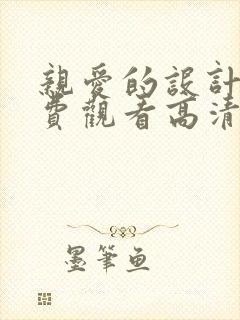 親愛的設計
費觀看高清
墨筆魚